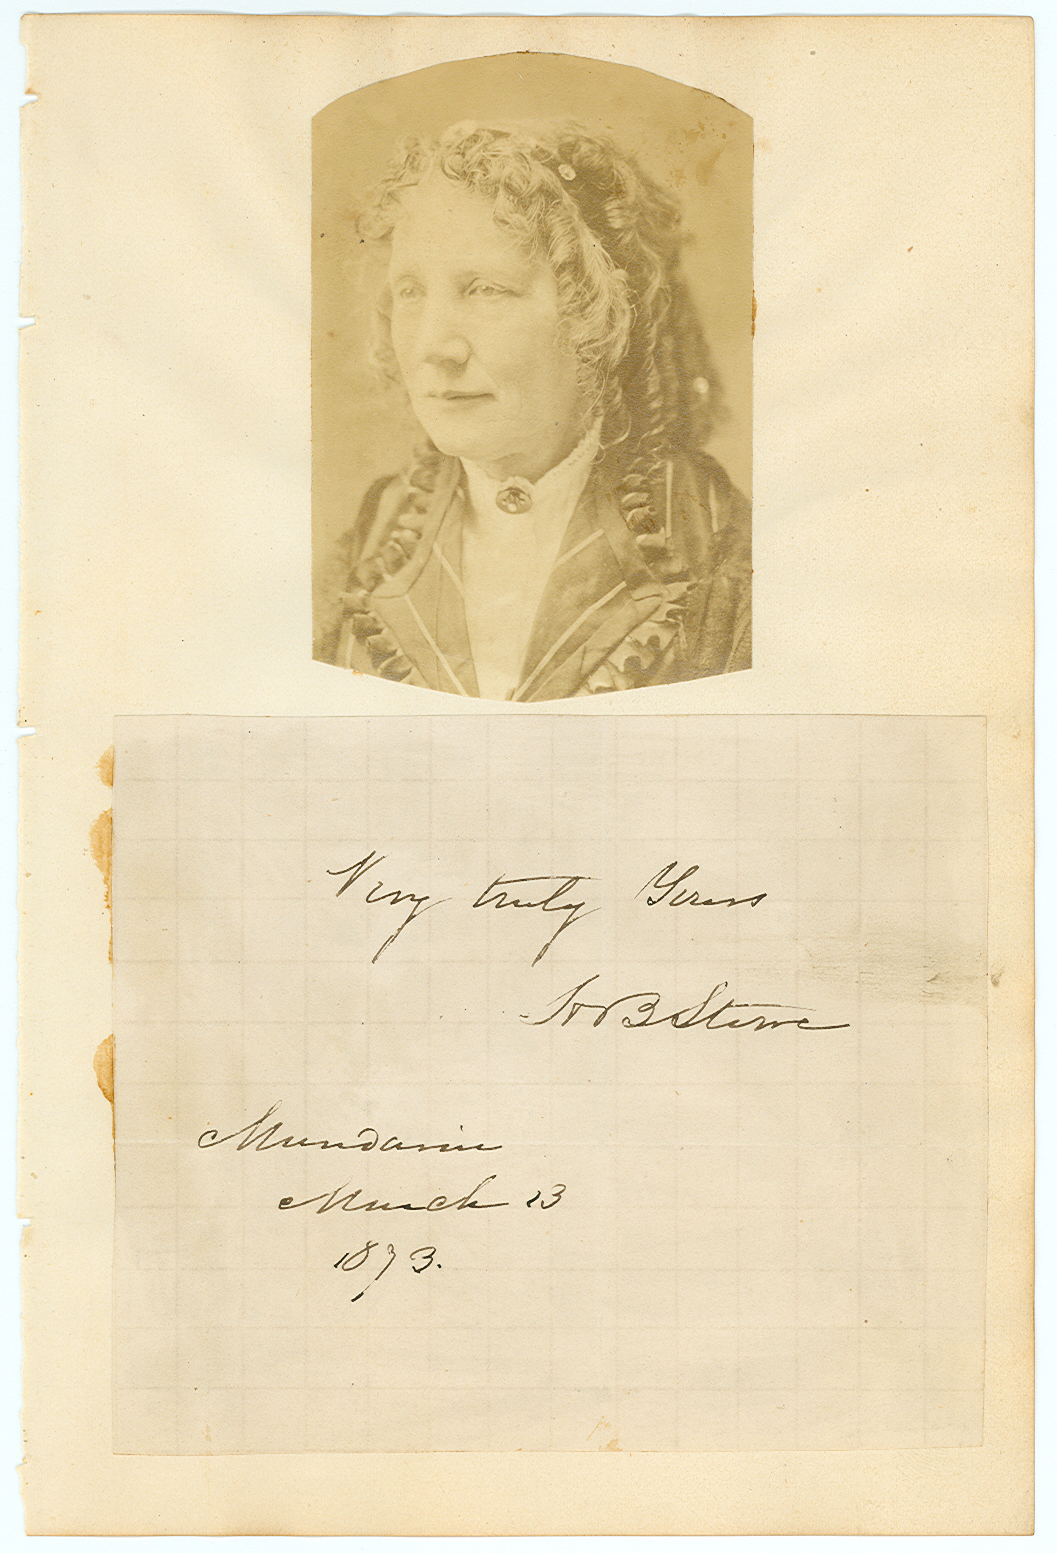 Very truly Yours
HBStowe
Mandarin
March 13
1873.